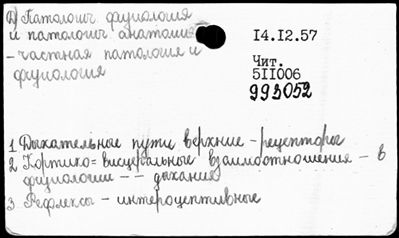 1) Патологич. физиология
и патологич. анатомия
- частная патология и
физиология
14.12.57
Чит.
511006
993052
1 Дыхательные пути верхние - рецепторы
2 Кортико=висцеральные взаимоотношения - в
физиологии - - дыхания
3 Рефлексы - интероцептивные